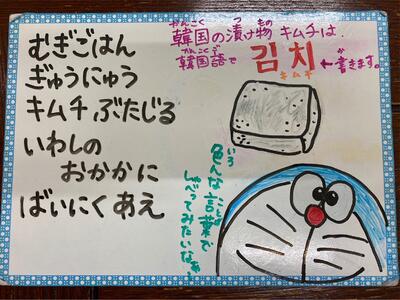 むぎごはん
ぎゅうにゅう
キムチぶたじる
いわしの
おかかに
ばいにくあえ
かんこく つ もの
韓国の漬け物 キムチは
かんこくご
韓国語で 김치 ←書きます。
か
キムチ
いろ
色んな言葉で
ことば
しゃべってみたいなぁ